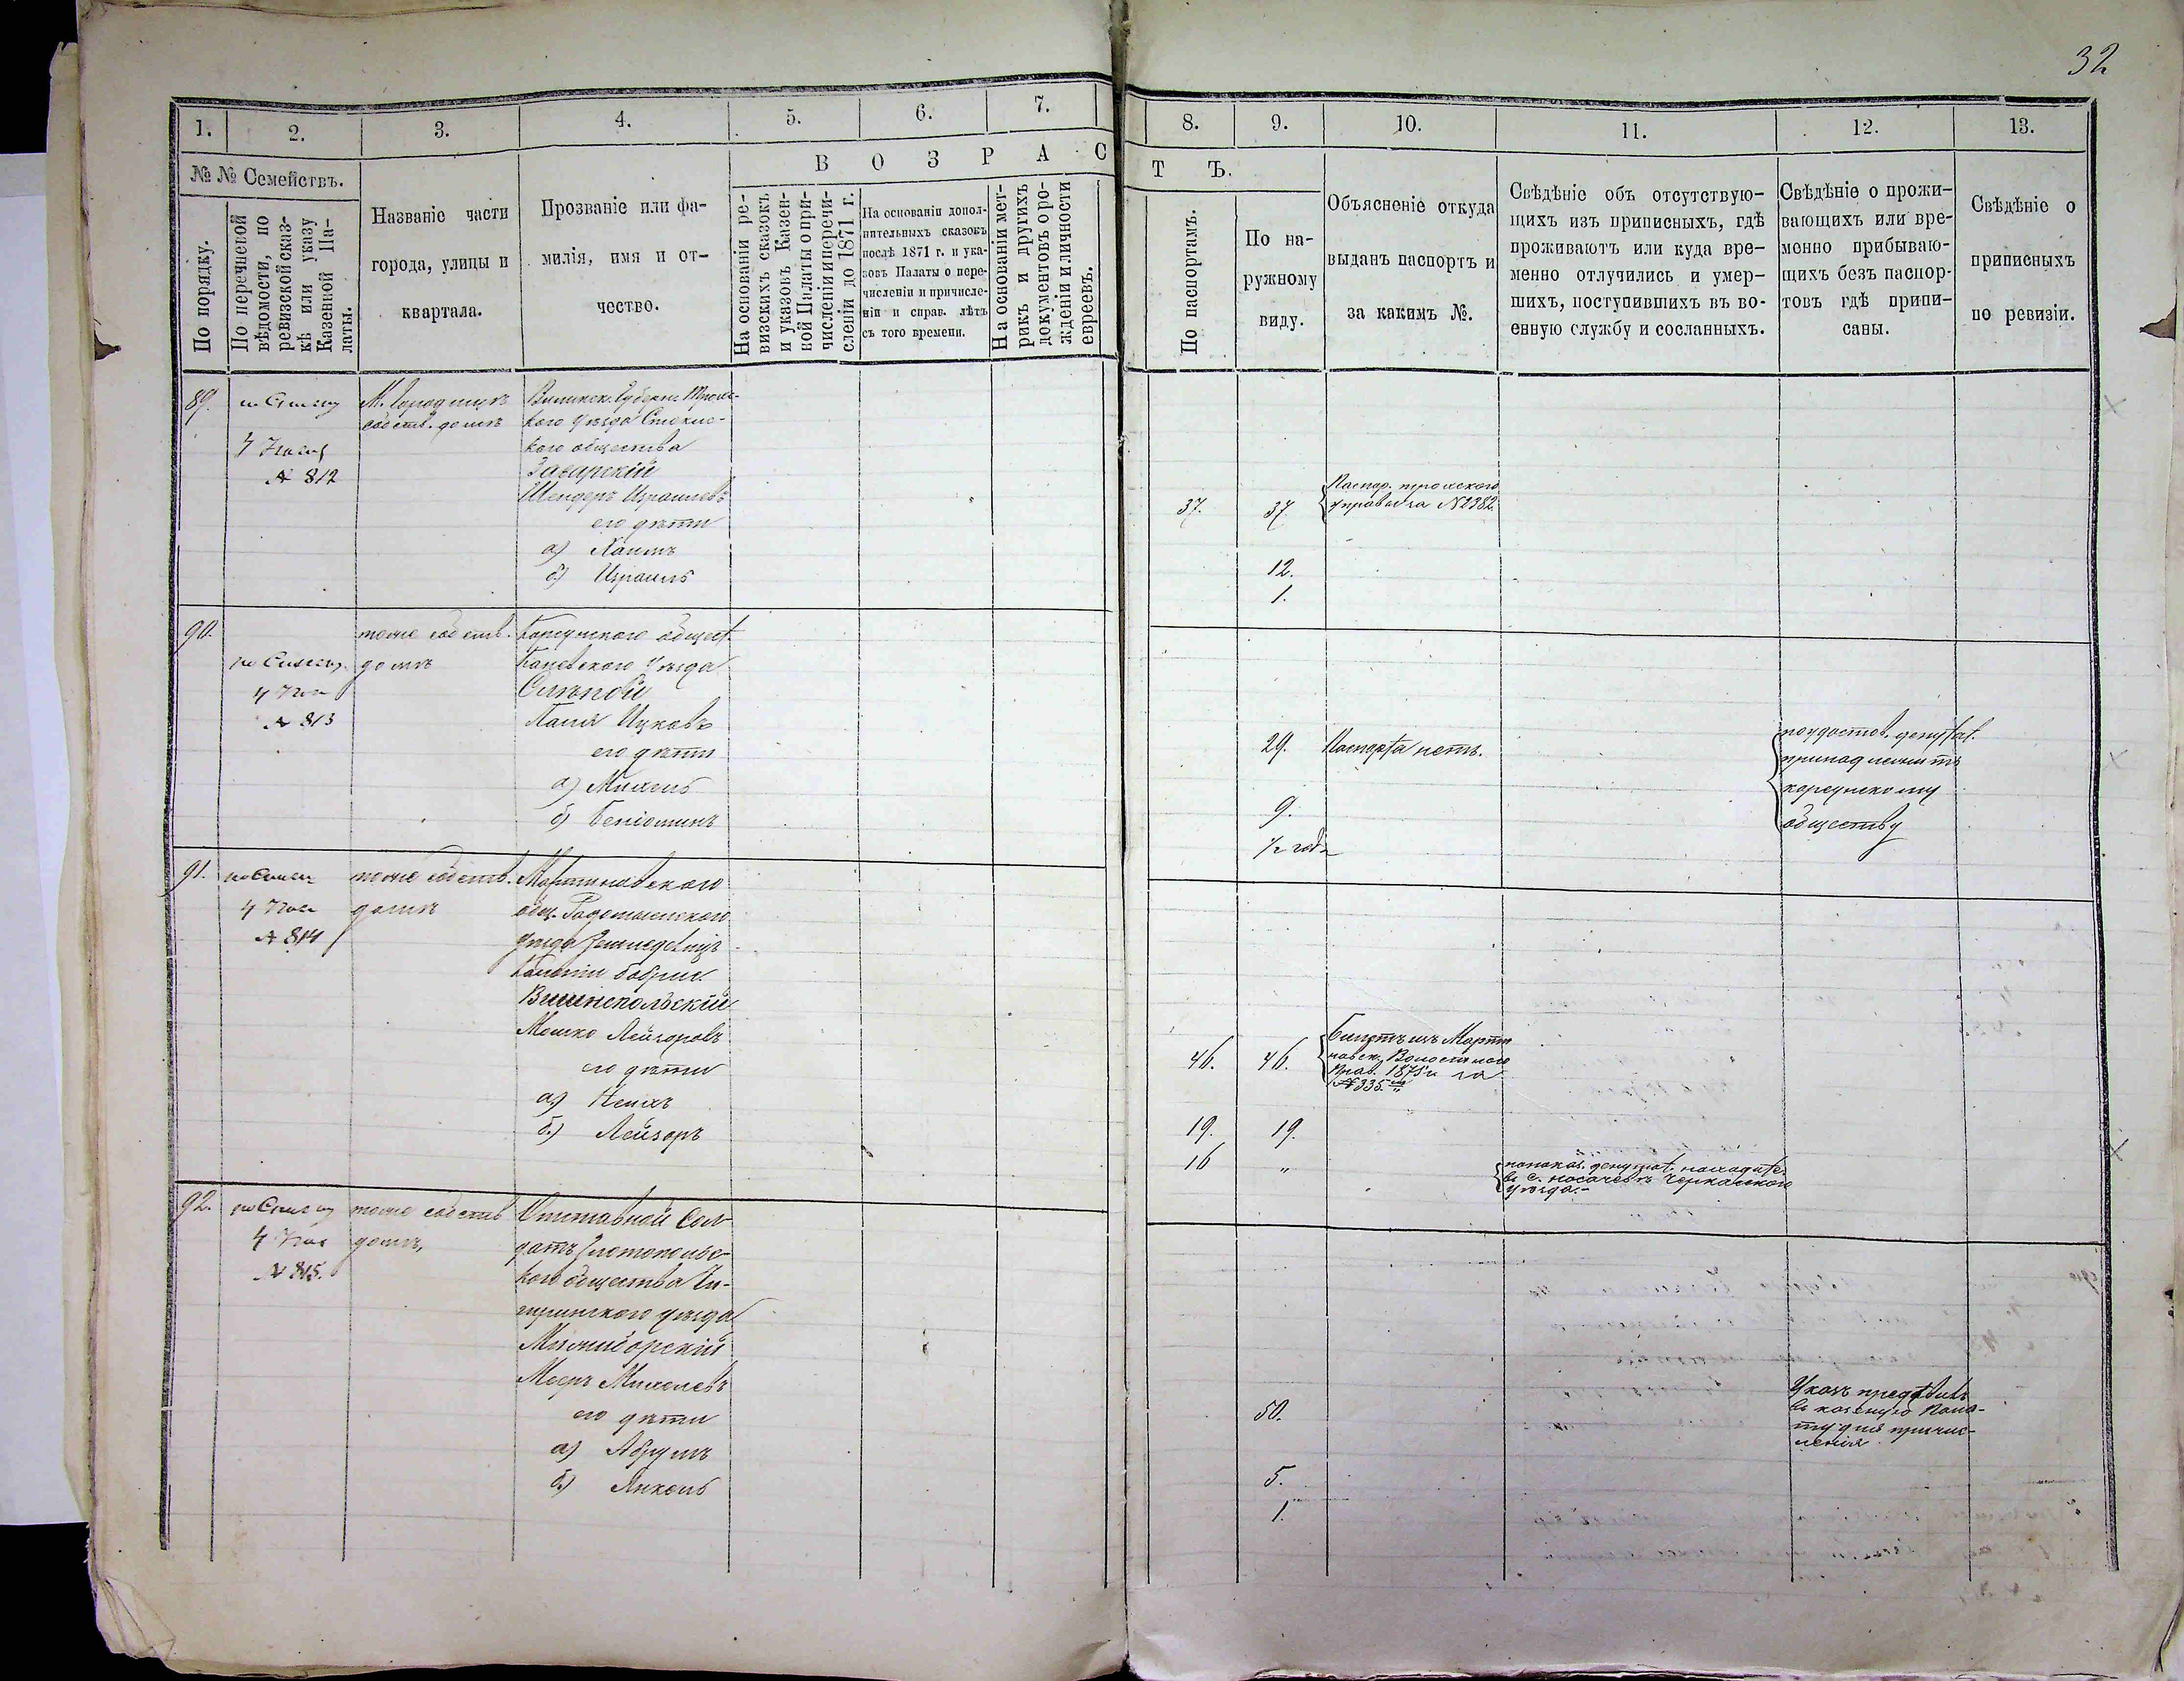 32
1.
2.
3.
4.
5.
6.
7.
8.
9.
10.
11.
12.
13.
№ № Семействъ.
По порядку.
По перечневой
вѣдомости, по
ревизской сказ-
кѣ или указу
Казенной Па-
латы.
Названіе части
города, улицы и
квартала.
Прозваніе или фа-
милія, имя и от-
чество.
В О З Р А С
Т Ъ.
На основаніи ре-
визскихъ сказокъ
и указовъ Казен-
ной Палаты о при-
численіи и перечи-
сленіи до 1871 г.
На основаніи допол-
нительныхъ сказокъ
послѣ 1871 г. и ука-
зовъ Палаты о пере-
численіи и причисле-
ніи и справ. лѣтъ
съ того времени.
На основаніи мет-
рикъ и другихъ
документовъ о ро-
жденіи и личности
евреевъ.
По паспортамъ.
По на-
ружному
виду.
Объясненіе откуда
выданъ паспортъ и
за какимъ №.
Свѣдѣніе объ отсутствую-
щихъ изъ приписныхъ, гдѣ
проживаютъ или куда вре-
менно отлучились и умер-
шихъ, поступившихъ въ во-
енную службу и сосланныхъ.
Свѣдѣніе о прожи-
вающихъ или вре-
менно прибываю-
щихъ безъ паспор-
товъ гдѣ припи-
саны.
Свѣдѣніе о
приписныхъ
по ревизіи.
89.
по Списку
4 Част
№ 812
М. Городище
собств. домъ
Виленск. Губерн. Трокс-
кого уезда
кого общества
Заварскій
Шендеръ Израилевъ
его дѣти
а) Хаимъ
б) Израиль
37.
37
12.
1.
Паспор.
№ 2382.
90.
по Списку
4 Час
№ 813
тоже собств.
домъ
Корсунского общест.
Каневского уѣзда
Слѣпой
Ицковъ
его дѣти
а) Михель
б) Беніоминъ
29.
9.
1/2 года
Паспорта нетъ.
принадлежитъ
корсунскому
обществу
91.
по Списк
4 Част
№ 814
тоже собств.
домъ
Мартиновского
общ. Радомысльского
уѣзда Земледелецъ
Вишнепольскій
Мошко Лейзоровъ
его дѣти
а)
б.) Лейзоръ
46.
46.
19.
19.
16
"
Билетъ изъ Марти
новск. Волостного
Прав. 1875 г. за
№ 335
по показ. депутат. находитс.
въ с. Носачевѣ Черкасского
уѣзда.-
92.
по Списку
4 Час
№ 815.
тоже собств
домъ,
Отставной Сол
датъ Златопольс-
кого общества Чи-
гиринского уѣзда
Межиборскій
Мееръ Михелевъ
его дѣти
а) Абрумъ
б.) Янкель
50.
5.
1.
Указъ представ.
въ казеную Пала-
ту для причис-
ленія